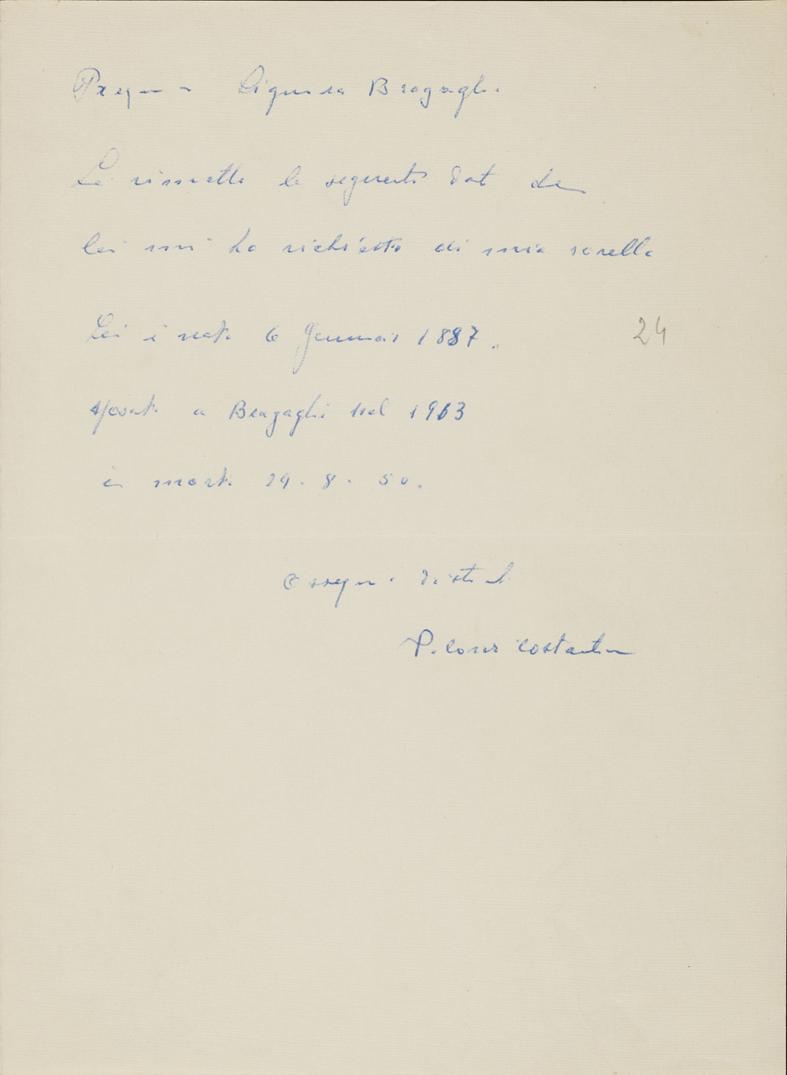 Signora Bragaglia
Le rimetto le seguenti dat che
lei mi ha richiesto di mia sorella
Lei è nata 6 Gennaio 1887.
24
sposata a Bragaglia nel 1913
è morta 29.8.50.
Ossequi distinti
Costantin